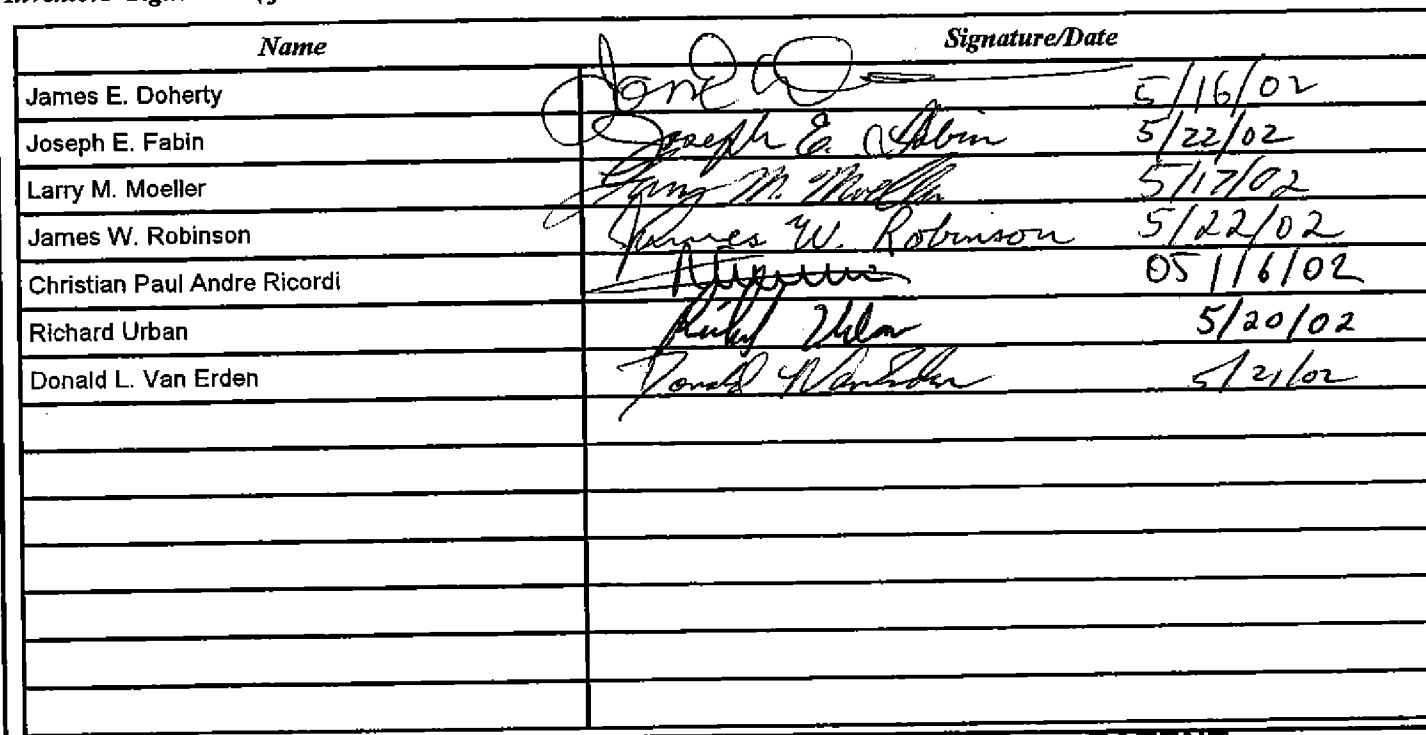 Name Signature/Date
James E. Doherty 5/16/02
Joseph E. Fabin Joseph E. Fabin 5/22/02
Larry M. Moeller Larry M. Moeller 5/17/02
James W. Robinson James W. Robinson 5/22/02
Christian Paul Andre Ricordi 05/16/02
Richard Urban Richard Urban 5/20/02
Donald L. Van Erden Donald L VanErden 5/21/02